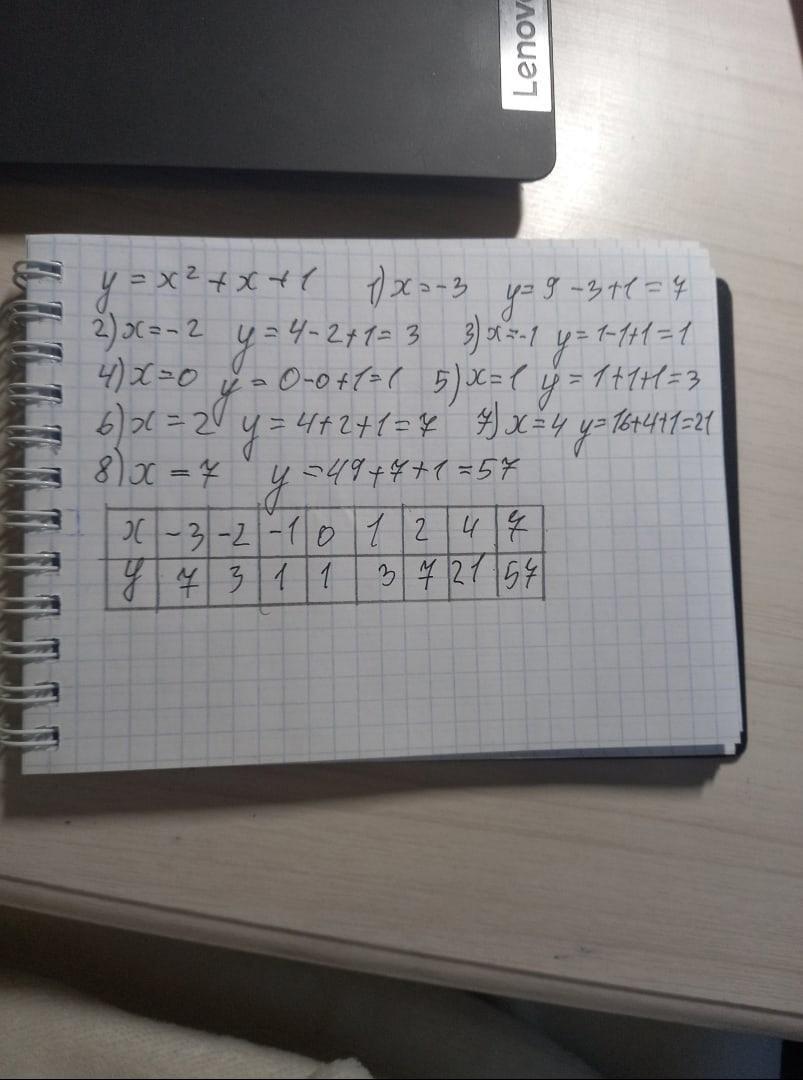 Lenovo
y = x² + x + 1 1) x = -3 y = 9 - 3 + 1 = 7
2) x = -2 y = 4 - 2 + 1 = 3 3) x = -1 y = 1 - 1 + 1 = 1
4) x = 0 y = 0 - 0 + 1 = 1 5) x = 1 y = 1 + 1 + 1 = 3
6) x = 2 y = 4 + 2 + 1 = 7 7) x = 4 y = 16 + 4 + 1 = 21
8) x = 7 y = 49 + 7 + 1 = 57
x -3 -2 -1 0 1 2 4 7
y 7 3 1 1 3 7 21 57